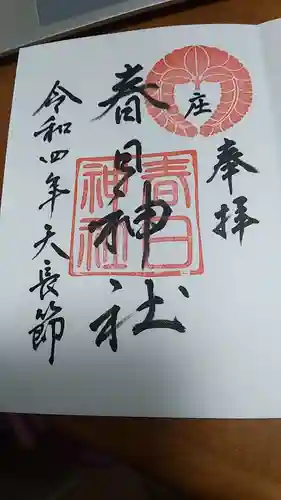 奉拝
庄
春日神社
春日
神社
令和四年天長節